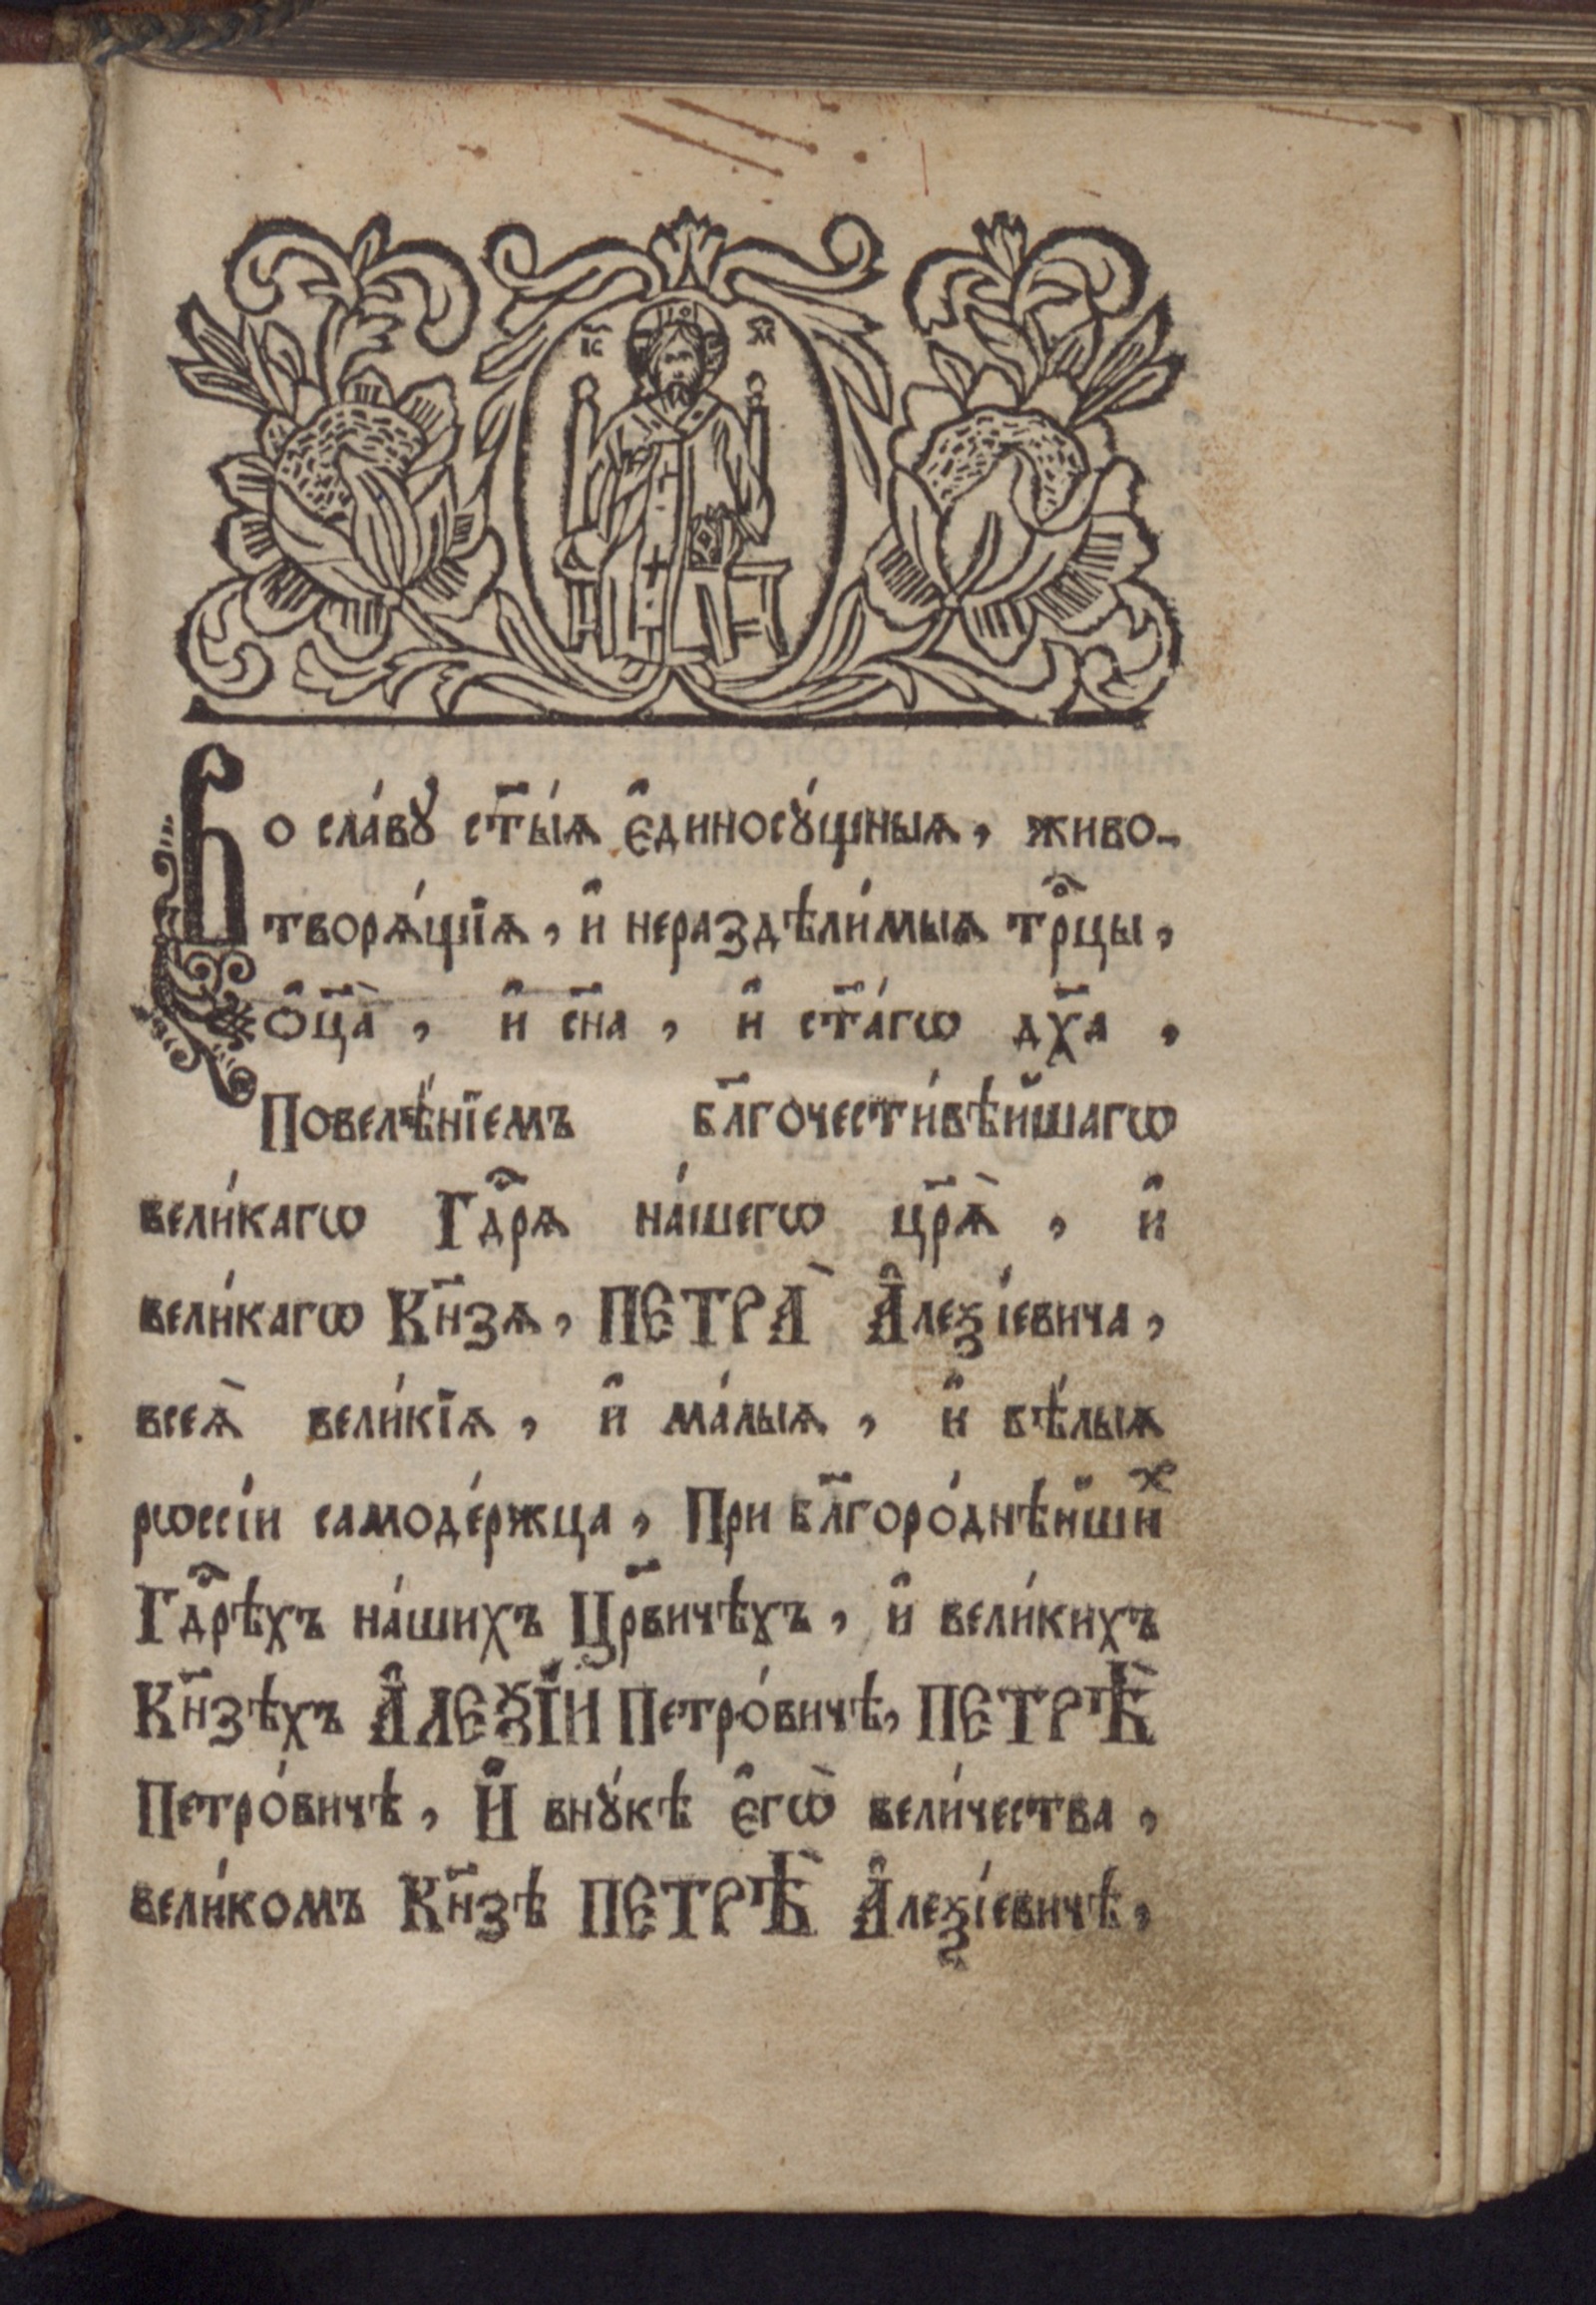 І҃С Х҃С
Во сла́вꙋ ст҃ы́ѧ є҆диносꙋ́щныѧ, живо-
творѧ́щїѧ, и҆ нераздѣли́мыѧ трⷪ҇цы,
ѻ҆ц҃а̀, и҆ сн҃а, и҆ ст҃а́гѡ дх҃а,
Повелѣ́нїемъ бл҃гочести́вѣйшагѡ
вели́кагѡ Гдⷭ҇рѧ на́шегѡ цр҃ѧ̀, и҆
вели́кагѡ Кн҃зѧ, ПЕТРА̀ А҆леѯі́евича,
всеѧ̀ вели́кїѧ, и҆ ма́лыѧ, и҆ бѣ́лыѧ
рѡссі́и самоде́ржца, При бл҃горо́днѣйшиⷯ
Гдⷭ҇рѣхъ на́шихъ Цр҃вичѣхъ, и҆ вели́кихъ
Кн҃зѣхъ А҆ЛЕѮІ́И Петро́вичѣ, ПЕТРѢ̀
Петро́вичѣ, И҆ внꙋ́кѣ є҆гѡ̀ вели́чества,
вели́комъ Кн҃зѣ ПЕТРѢ̀ А҆леѯі́евичѣ,